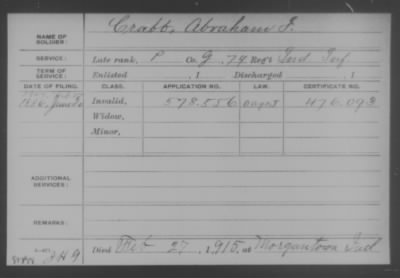 NAME OF SOLDIER: Crabb, Abraham F.
SERVICE: Late rank, P Co. G, 74 Reg't Ind Inf
TERM OF SERVICE: Enlisted , 1 Discharged , 1
DATE OF FILING. CLASS. APPLICATION NO. LAW. CERTIFICATE NO.
1886, June Invalid, 578.556 476.093
Widow,
Minor,
ADDITIONAL SERVICES:
REMARKS:
Died Feb 27, 1915, at Morgantown Ind